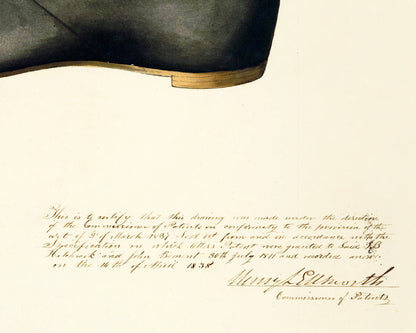 This is to certify that this drawing was made under the direction
of the Commissioner of Patents in conformity to the provision of the
act of 3d of March 1837 Sect 1st from and in accordance with the
Specification on which Letters Patent were granted to Said
Hitchcock and John Bement 30th July 1811 and recorded anew
on the 14th of April 1838
Henry L Ellsworth
Commissioner of Patents